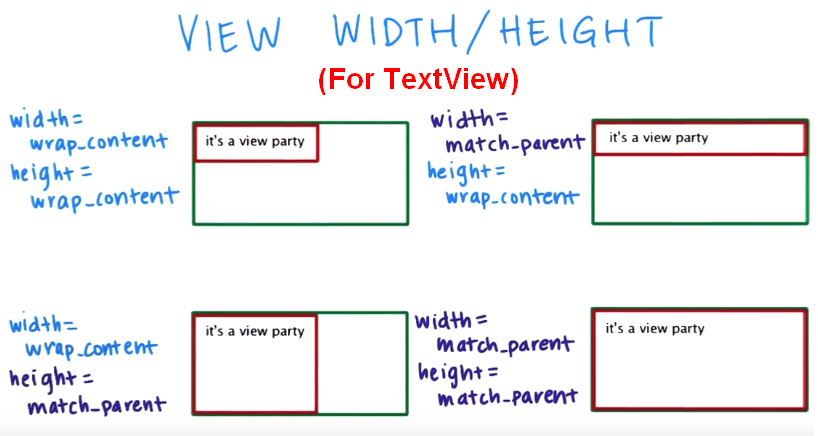 VIEW WIDTH/HEIGHT
(For TextView)
width=
wrap_content
height=
wrap_content
it's a view party
width=
match_parent
height=
wrap_content
it's a view party
width=
wrap_content
height=
match_parent
it's a view party
width=
match_parent
height=
match_parent
it's a view party